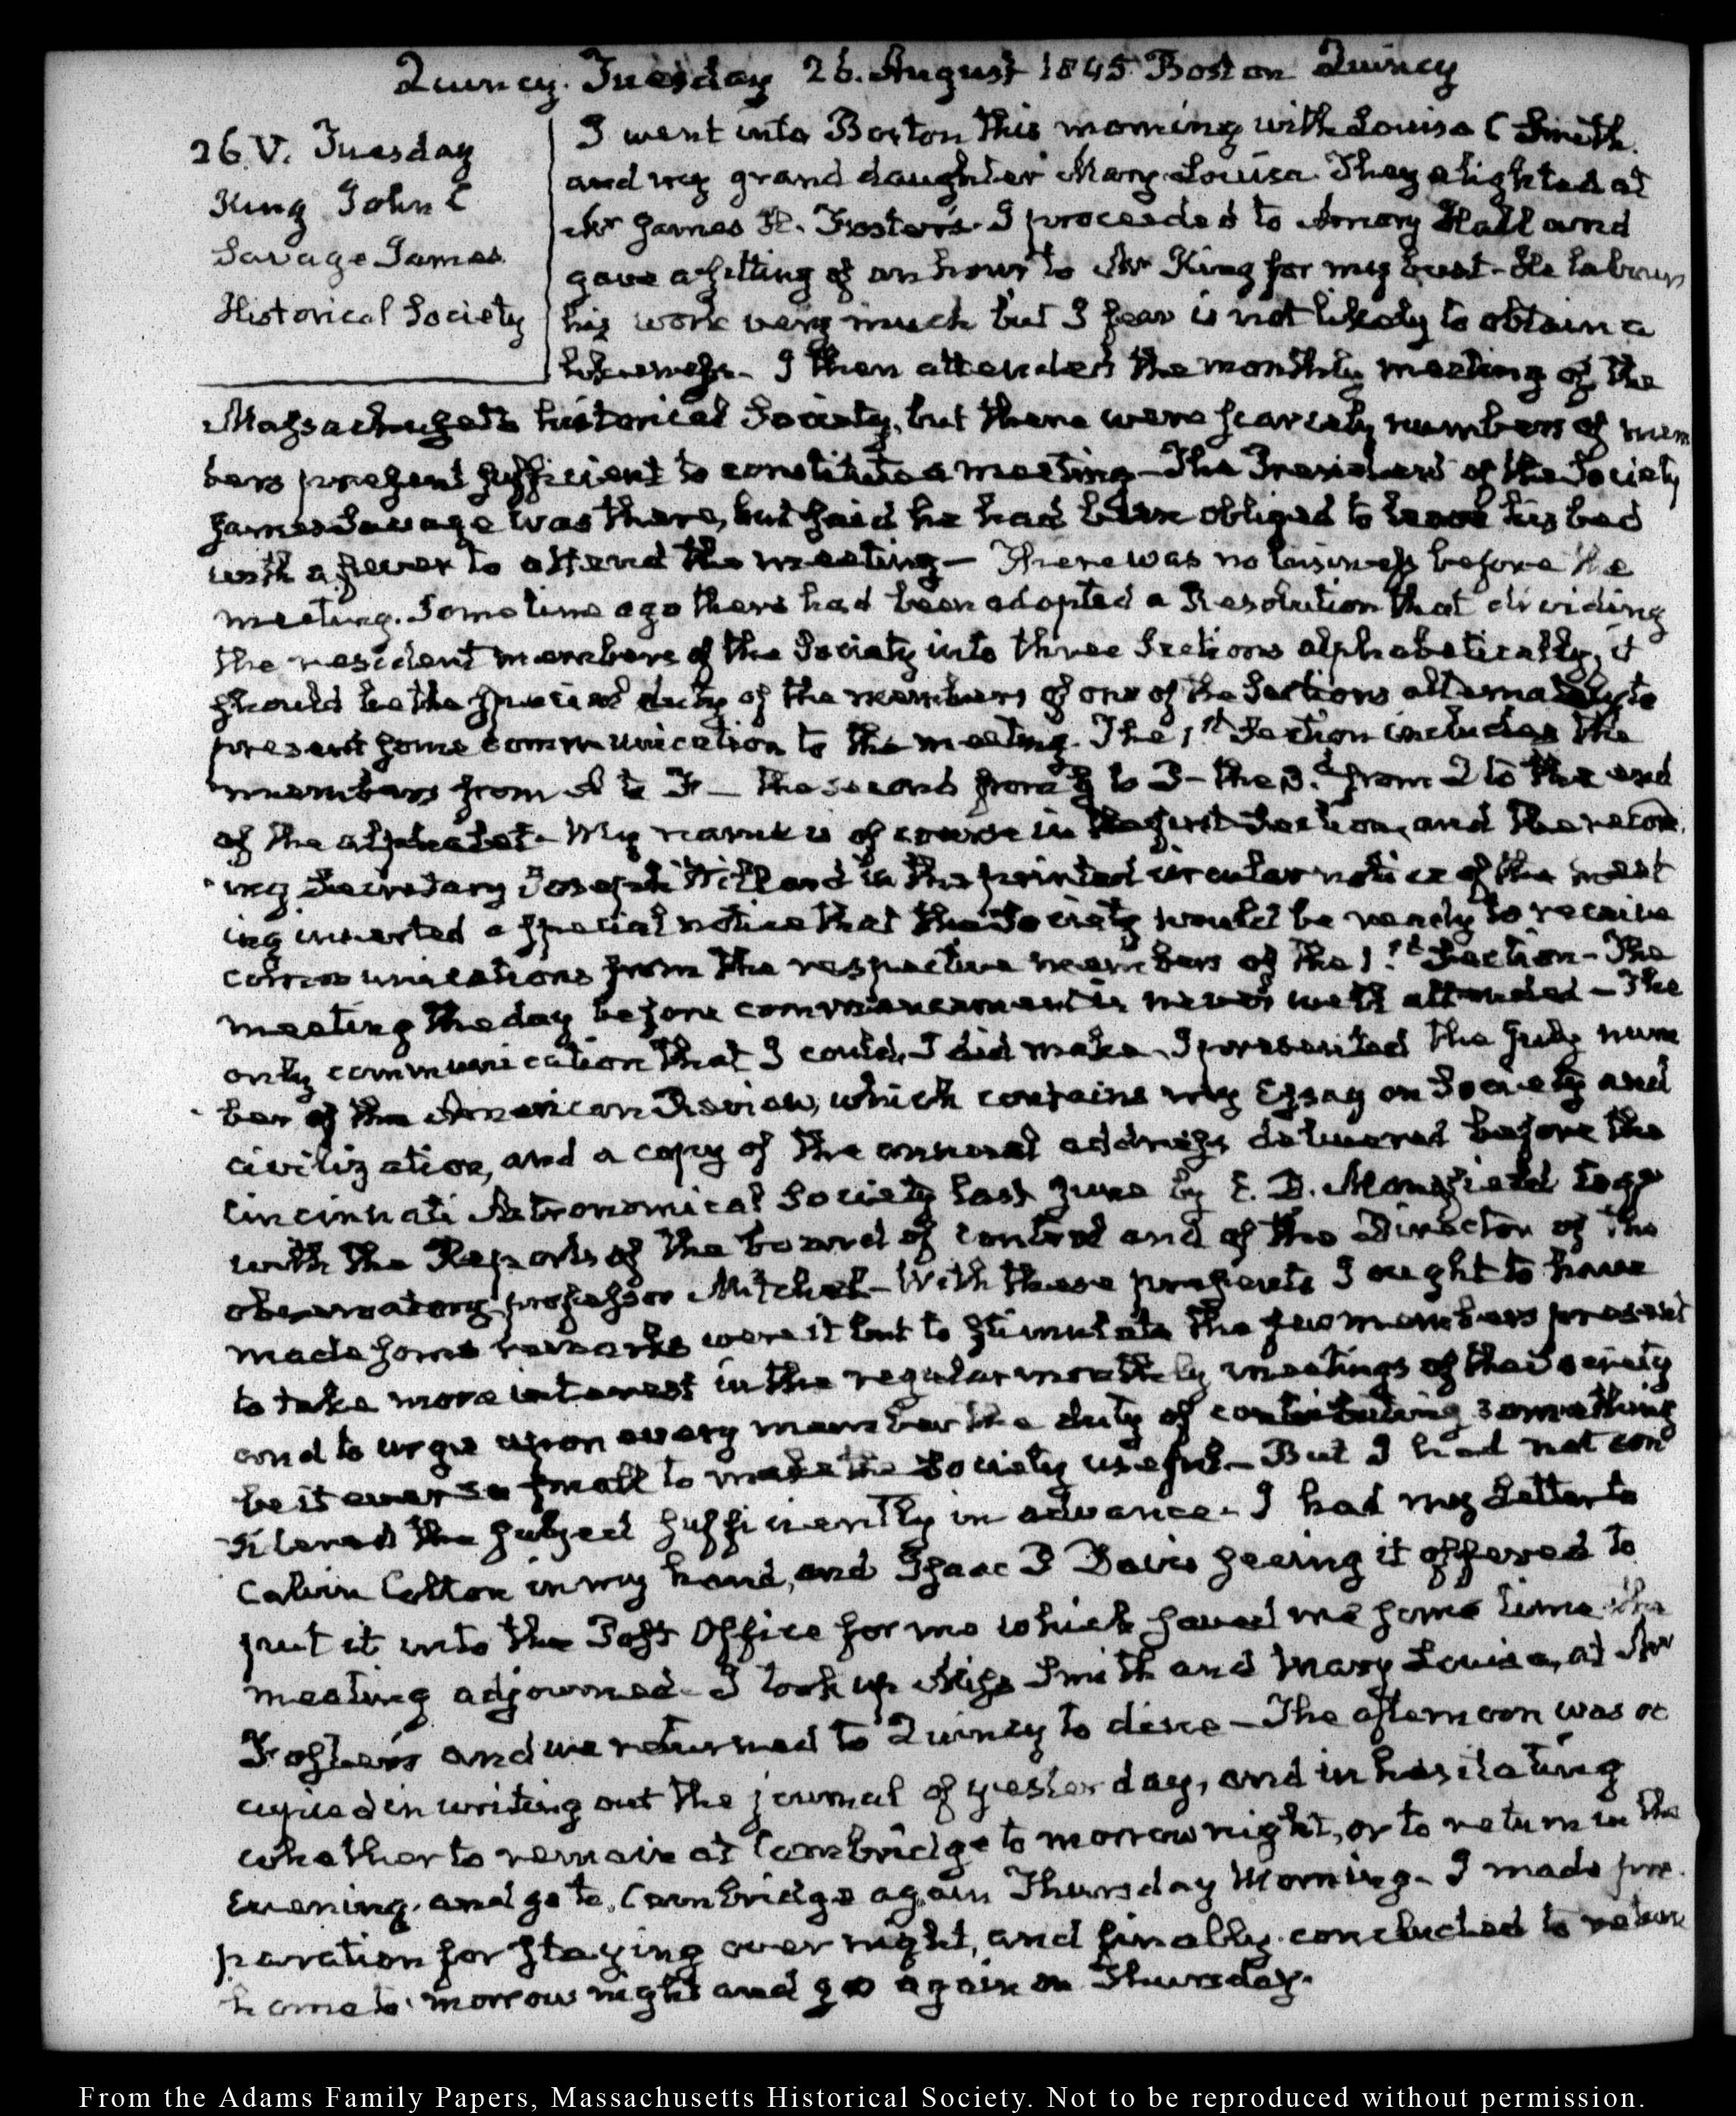 Quincy. Tuesday 26. August 1845. Boston Quincy
26 V. Tuesday
King John C
Savage James
Historical Society
I went into Boston this morning with Louisa C Smith
and my grand daughter Mary Louisa. They alighted at
Mr James H. Foster's. I proceeded to Amory Hall and
gave a sitting of an hour to Mr King for my bust. He labours
his work very much but I fear is not likely to obtain a
likeness. I then attended the monthly meeting of the
Massachusetts historical Society, but there were scarcely numbers of mem
bers present sufficient to constitute a meeting — The President of the Society
James Savage was there, but said he had been obliged to leave his bed
with a fever to attend the meeting — There was no business before the
meeting. Some time ago there had been adopted a Resolution that dividing
the resident members of the Society into three Sections alphabetically, it
should be the special duty of the members of one of the Sections alternately to
present some communication to the meeting. The 1st Section includes the
members from A to F — the second from G to P — the 3.d from Q to the end
of the alphabet. My name is of course in the first Section, and the record
ing Secretary Joseph Willard in the printed circular notice of the meet
ing inserted a special notice that the Society would be ready to receive
communications from the respective members of the 1.st Section — The
meeting the day before commencement is never well attended — The
only communication that I could, I did make. I presented the July num
ber of the American Review, which contains my Essay on Society and
civilization, and a copy of the annual address delivered before the
Cincinnati Astronomical Society last June by E. D. Mansfield Esqr
with the Reports of the board of control and of the Director of the
observatory professor Mitchel — With these presents I ought to have
made some remarks were it but to stimulate the few members present
to take more interest in the regular monthly meetings of the Society
and to urge upon every member the duty of contributing something
be it ever so small to make the Society useful — But I had not con
sidered the subject sufficiently in advance. I had my Letter to
Calvin Colton in my hand, and Isaac P Davis seeing it offered to
put it into the Post Office for me which saved me some time. The
meeting adjourned. I took up Miss Smith and Mary Louisa, at Mr
Foster's and we returned to Quincy to dine — The afternoon was oc
cupied in writing out the journal of yesterday, and in hesitating
whether to remain at Cambridge to morrow night, or to return in the
Evening, and go to Cambridge again Thursday Morning. I made pre
paration for staying over night, and finally concluded to return
home to morrow night and go again on Thursday.
From the Adams Family Papers, Massachusetts Historical Society. Not to be reproduced without permission.